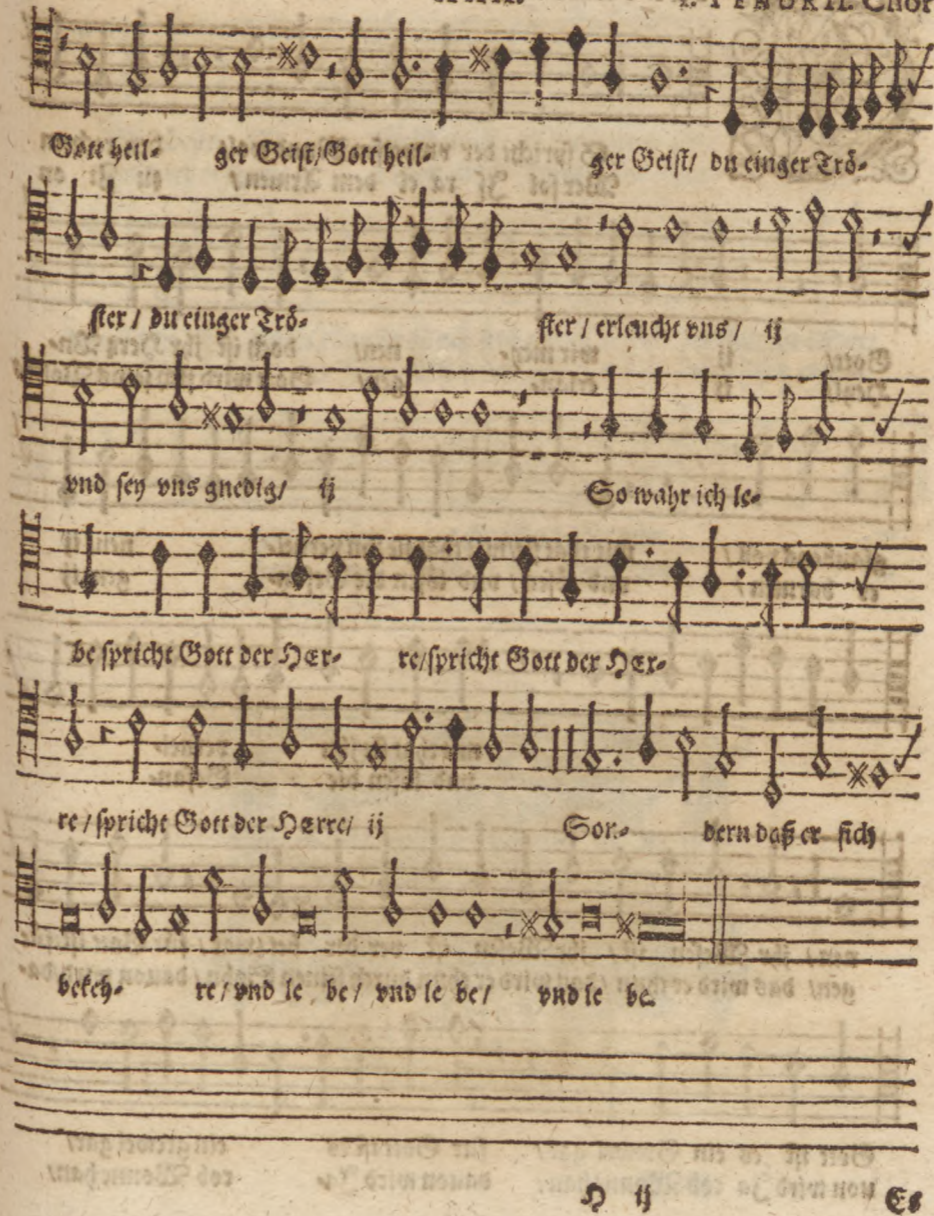 Chor
Gott heil- ger Geist/ Gott heil- ger Geist/ du einger Trö-
ster / du einger Trö- ster / erleucht vns / ij
vnd sey vns gnedig/ ij So wahr ich le-
be spricht Gott der Hær- re/spricht Gott der Hær-
re / spricht Gott der Hærre/ ij Son- dern daß er sich
bekeh- re / vnd le be / vnd le be / vnd le be.
H ij Es